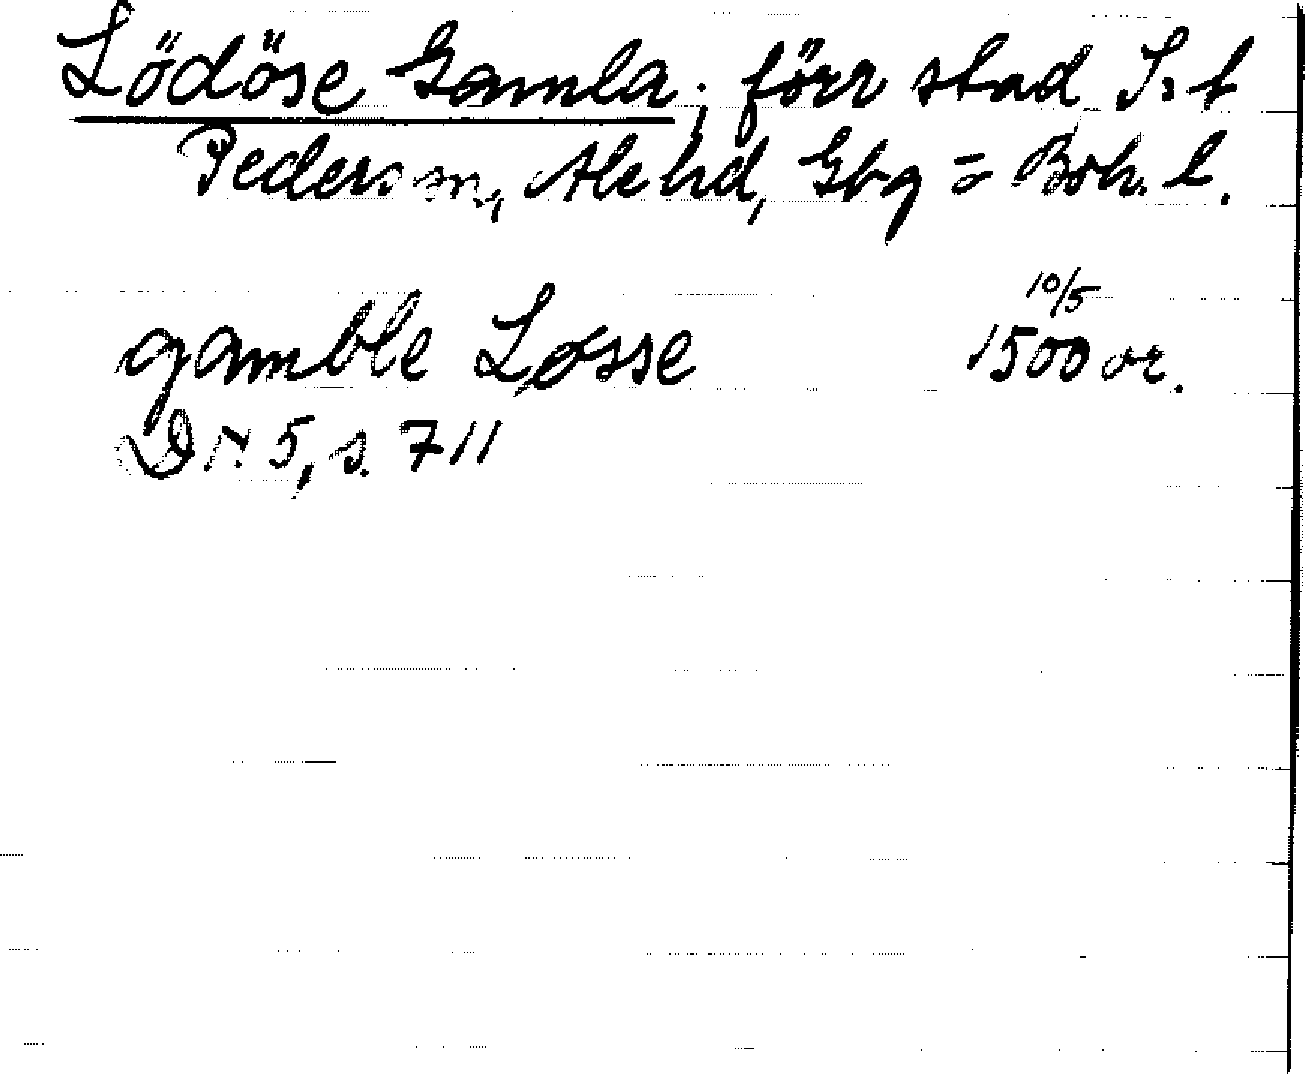 Lödöse Gamla; förr stad S:t
Peders sn, Ale hd, Gbg = Boh. l.
10/5
gamble Løsse 1500 or.
DN 5, s. 711